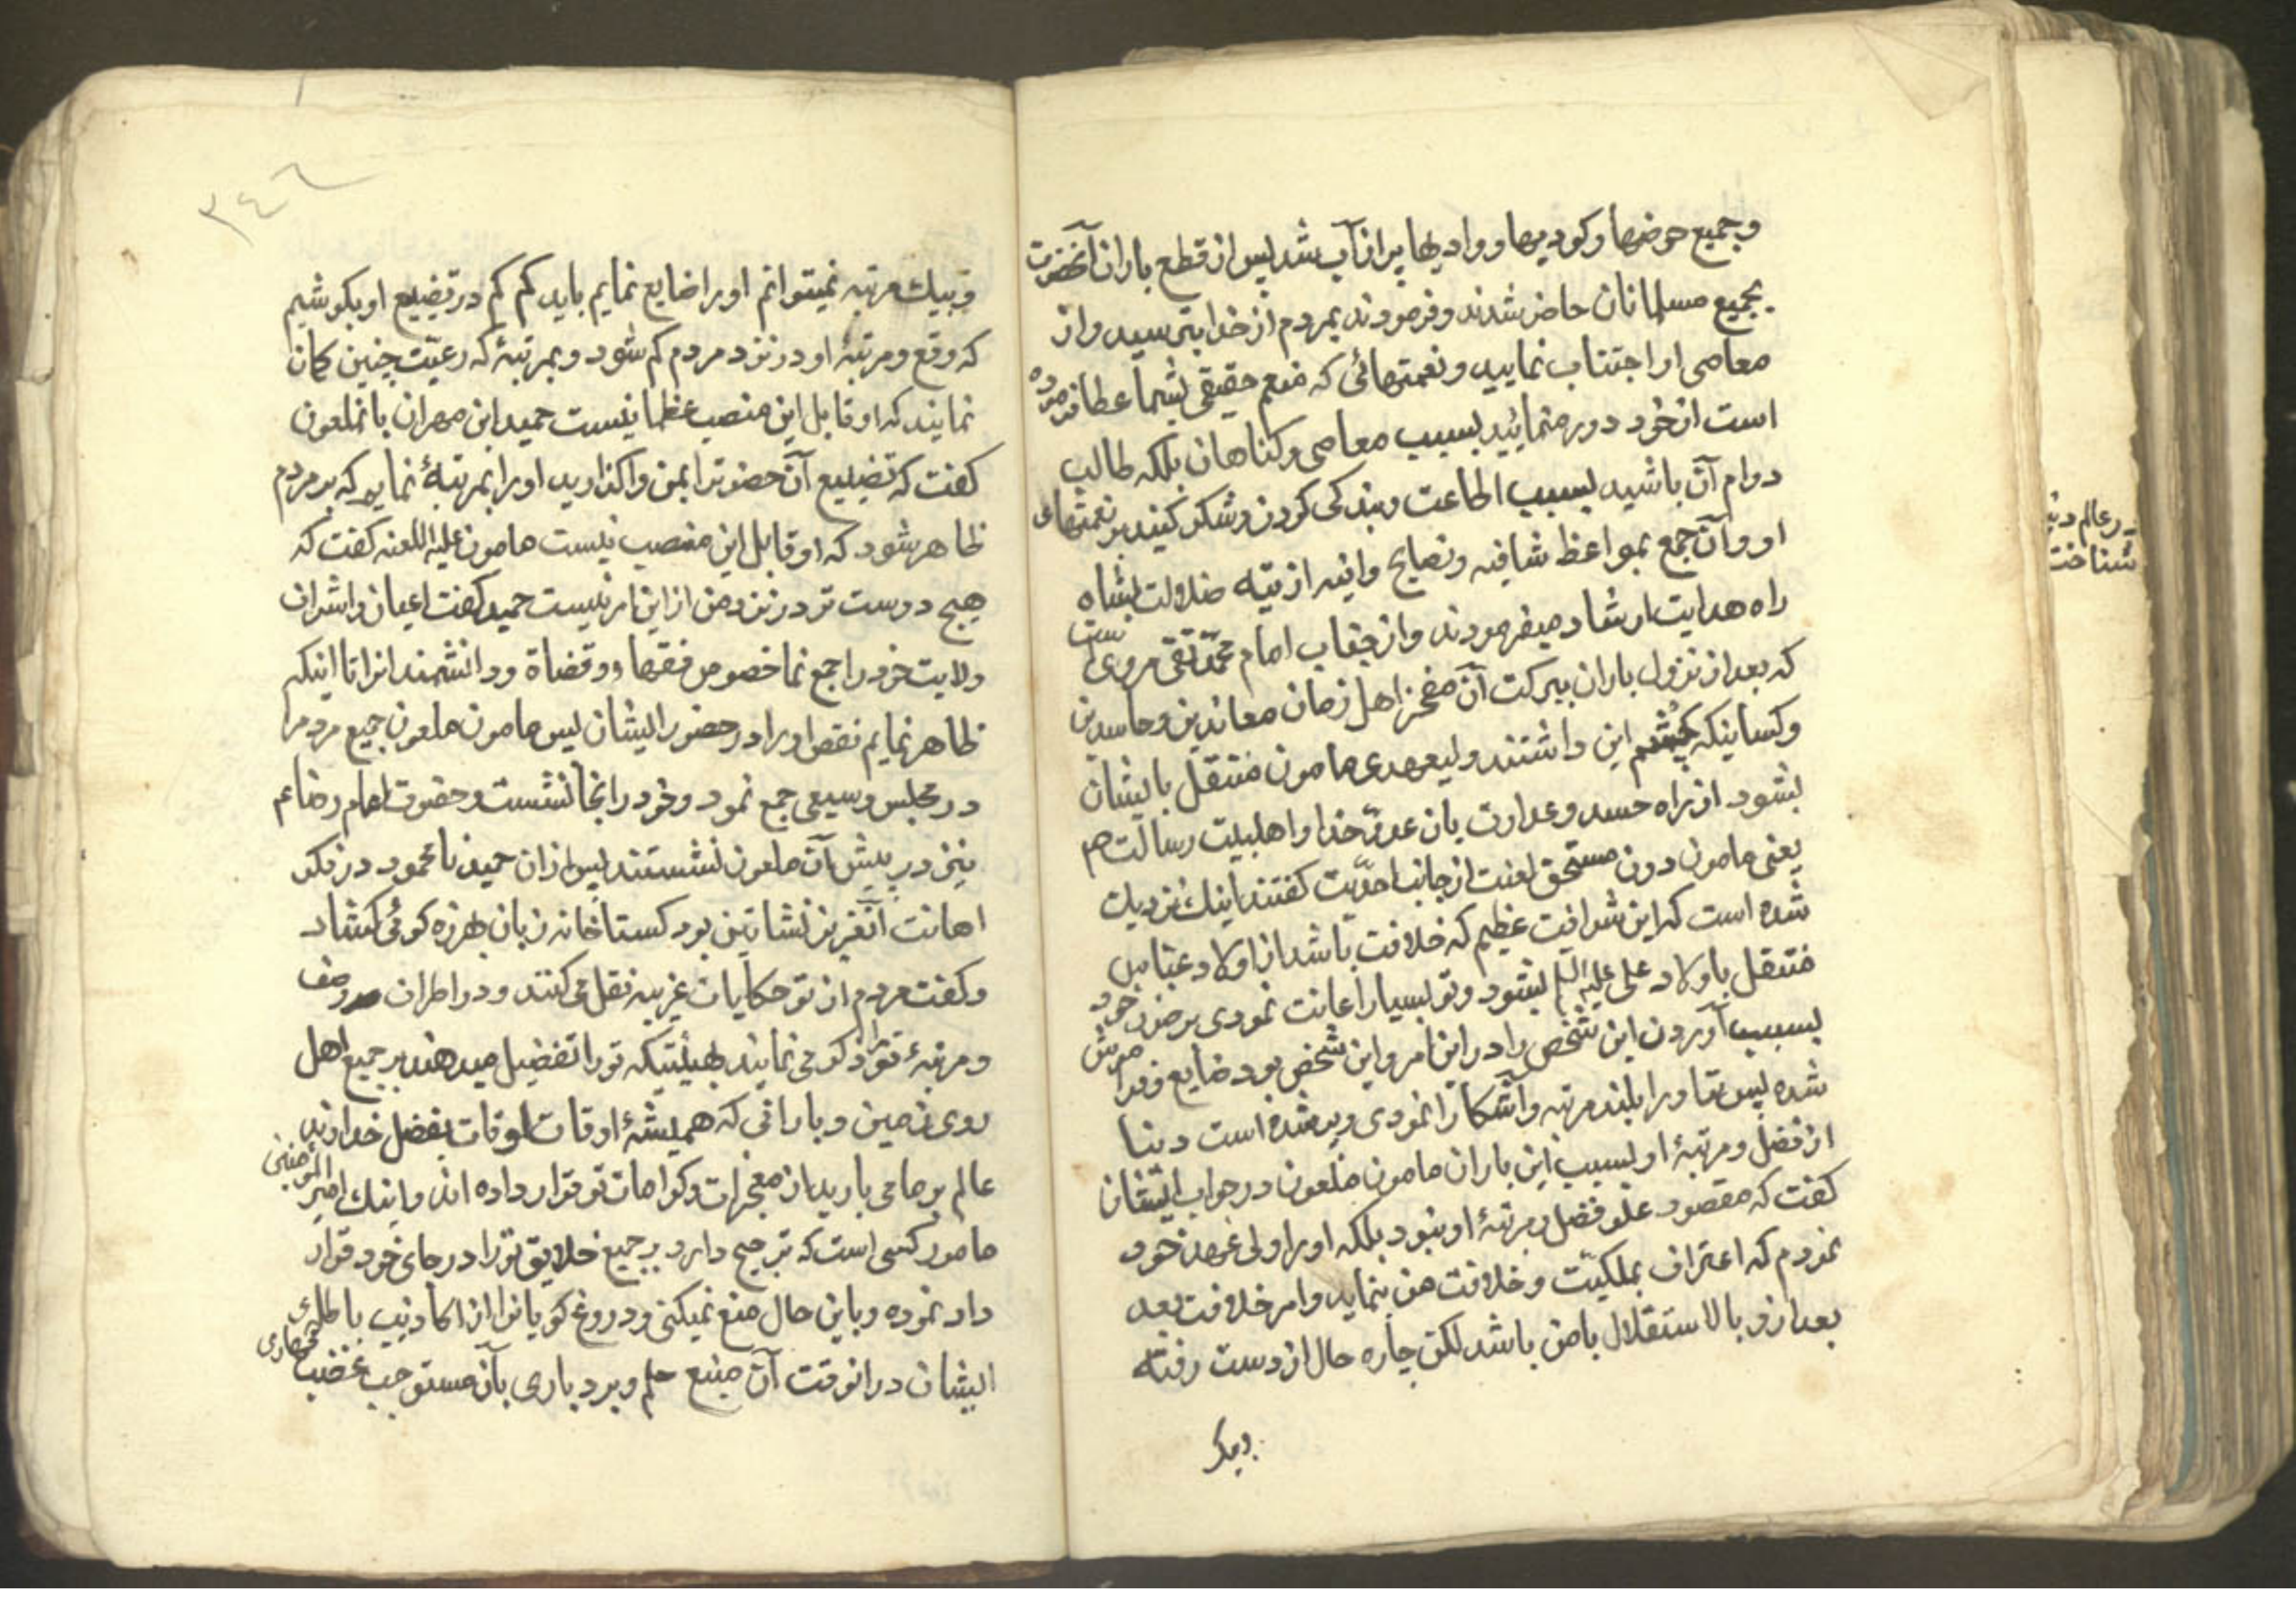 وجمیع حوضها وکودیها ووادیها پر از آب شد پس از قطع باران آنحضرت
بجمیع مسلمانان حاضر شدند وفرمودند بمردم از خدا بترسید واز
معاصی او اجتناب نمایید ونعمتهائی که منعم حقیقی بشما عطا فرموده
است از خود دور منمائید بسبب معاصی وکناهان بلکه طالب
دوام آن باشید بسبب اطاعت وبندکی کردن وشکر کنید بر نعمتهای
او وآن جمع بمواعظ شافیه ونصایح وافیه از تیه ضلالت بشاه
راه هدایت ارشاد میفرمودند واز جناب امام محمّد تقی مرویست
که بعد از نزول باران ببرکت آن مفخر اهل زمان معاندین وحاسدین
وکسانیکه چشم این داشتند ولیعهدی مامون منتقل بایشان
بشود از راه حسد وعداوت بان عدوّ خدا واهلبیت رسالت هم
یعنی مامون دون مستحق لعنت از جانب احدیّت کفتند اینك نزدیك
شده است که این شرافت عظیم که خلافت باشد از اولاد عبّاس
منتقل باولاد علی علیه السلم بشود وتو بسیار اعانت نمودی بر ضرر خود
بسبب آوردن این شخص را در این امر واین شخص بود ضایع وفراموش
شده پس تو اورا بلند مرتبه وآشکارا نمودی وپر شده است دنیا
از فضل ومرتبهٔ او بسبب این باران مامون ملعون در جواب ایشان
کفت که مقصود علو فضل ومرتبهٔ او نبود بلکه اورا ولی عهد خود
نمودم که اعتراف بملکیّت وخلافت من بنماید وامر خلافت بعد
بعد ازو بالاستقلال بامن باشد لکن چاره حال از دست رفته
دیکر
ر عالم دنیا
شناخت
٣٤٦
وبیك مرتبه نمیتوانم اورا ضایع نمایم باید کم کم در تضییع او بکوشیم
که وقع ومرتبهٔ او در نزد مردم کم شود وبمرتبهٔ که رعیّت چنین کمان
نمایند که او قابل این منصب عظما نیست حمید ابن مهران بانملعون
کفت که تضییع آن حضوترا بمن واکذارید اورا بمرتبهٔ نمایم که بر مردم
ظاهر شود که او قابل این منصب نیست مامون علیه اللعنه کفت که
هیچ دوست تر در نزد من از این امر نیست حمید کفت اعیان واشراف
ولایت خود را جمع نما خصوص فقها ووقضاة ودانشمندانرا تا اینکه
ظاهر نمایم نقص اورا در حضور ایشان پس مامون ملعون جمیع مردمرا
در مجلس وسیعی جمع نمود وخود را بخا نشست وحضرت امام رضا عم
نیز در پیش آن ملعون نشستند پس از ان حمید نا محمود در فکر
اهانت آنعزیز نشاتین بود کستاخانه زبان بهرزه کوئی کشاد
وکفت مردم از تو حکایات غریبه نقل می کنند ودر اطراف وصف
ومرتبهٔ تورا ذکر می نمایند بهیئتیکه تورا تفضیل میدهند بر جمیع اهل
روی زمین وبارانی که همیشهٔ اوقات اوقات بفضل خداوند
عالم بر ما می بارید از معجزات وکرامات تو قرار داده اند واینك امیر المؤمنین
مامون کسی است که ترجیح دارد بر جمیع خلایق تورا در جای خود قرار
داد نموده وباین حال منع نمیکنی ودروغ کویانرا از اکاذیب باطلهٔ
ایشان در انوقت آن منبع حلم وبردباری بآن مستوجب غضب قهاری